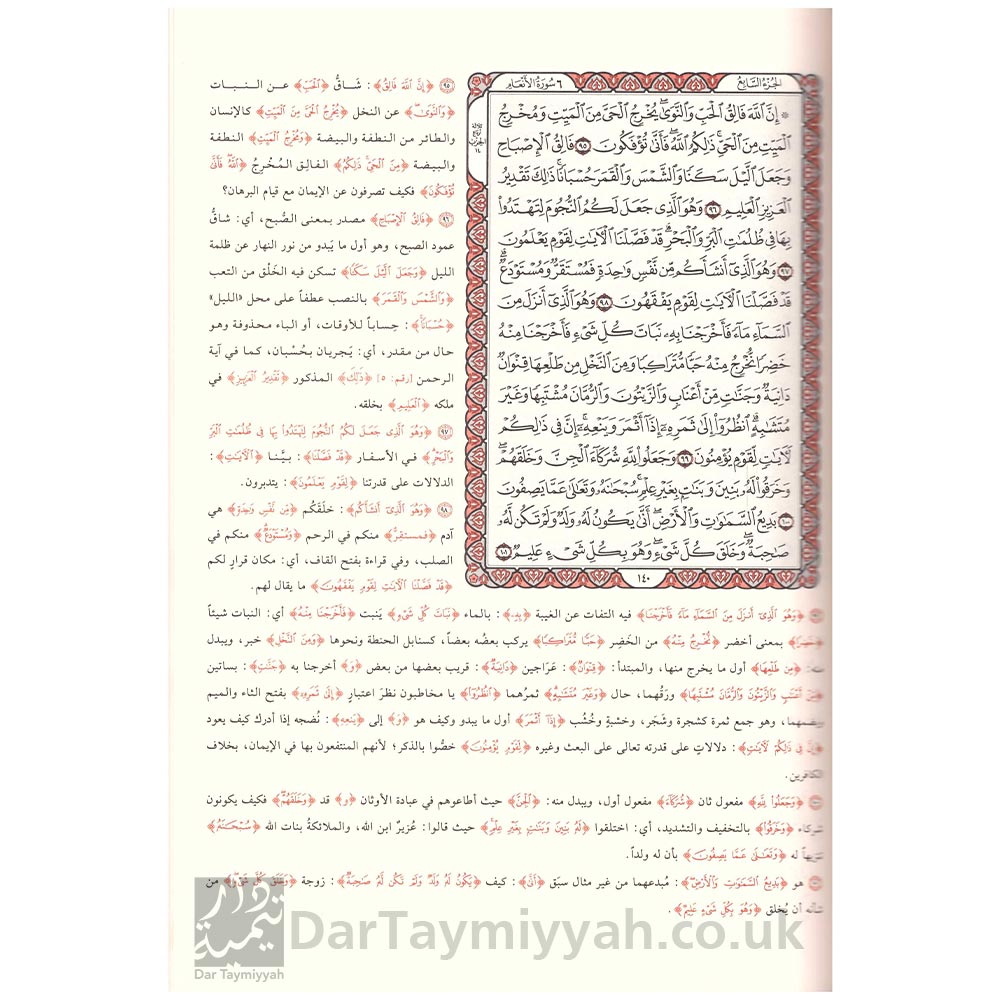 الجزء السابع
٦ سورة الأنعام
۞ إِنَّ ٱللَّهَ فَالِقُ ٱلْحَبِّ وَٱلنَّوَىٰ ۖ يُخْرِجُ ٱلْحَىَّ مِنَ ٱلْمَيِّتِ وَمُخْرِجُ
ٱلْمَيِّتِ مِنَ ٱلْحَىِّ ۚ ذَٰلِكُمُ ٱللَّهُ ۖ فَأَنَّىٰ تُؤْفَكُونَ ٩٥ فَالِقُ ٱلْإِصْبَاحِ
وَجَعَلَ ٱلَّيْلَ سَكَنًا وَٱلشَّمْسَ وَٱلْقَمَرَ حُسْبَانًا ۚ ذَٰلِكَ تَقْدِيرُ
ٱلْعَزِيزِ ٱلْعَلِيمِ ٩٦ وَهُوَ ٱلَّذِى جَعَلَ لَكُمُ ٱلنُّجُومَ لِتَهْتَدُوا۟
بِهَا فِى ظُلُمَٰتِ ٱلْبَرِّ وَٱلْبَحْرِ ۗ قَدْ فَصَّلْنَا ٱلْآيَٰتِ لِقَوْمٍ يَعْلَمُونَ
٩٧ وَهُوَ ٱلَّذِىٓ أَنشَأَكُم مِّن نَّفْسٍ وَٰحِدَةٍ فَمُسْتَقَرٌّ وَمُسْتَوْدَعٌ ۗ
قَدْ فَصَّلْنَا ٱلْآيَٰتِ لِقَوْمٍ يَفْقَهُونَ ٩٨ وَهُوَ ٱلَّذِىٓ أَنزَلَ مِنَ
ٱلسَّمَآءِ مَآءً فَأَخْرَجْنَا بِهِۦ نَبَاتَ كُلِّ شَىْءٍ فَأَخْرَجْنَا مِنْهُ
خَضِرًا نُّخْرِجُ مِنْهُ حَبًّا مُّتَرَاكِبًا وَمِنَ ٱلنَّخْلِ مِن طَلْعِهَا قِنْوَانٌ
دَانِيَةٌ وَجَنَّٰتٍ مِّنْ أَعْنَابٍ وَٱلزَّيْتُونَ وَٱلرُّمَّانَ مُشْتَبِهًا وَغَيْرَ
مُتَشَٰبِهٍ ۗ ٱنظُرُوٓا۟ إِلَىٰ ثَمَرِهِۦٓ إِذَآ أَثْمَرَ وَيَنْعِهِۦٓ ۚ إِنَّ فِى ذَٰلِكُمْ
لَآيَٰتٍ لِّقَوْمٍ يُؤْمِنُونَ ٩٩ وَجَعَلُوا۟ لِلَّهِ شُرَكَآءَ ٱلْجِنَّ وَخَلَقَهُمْ ۖ
وَخَرَقُوا۟ لَهُۥ بَنِينَ وَبَنَٰتٍۭ بِغَيْرِ عِلْمٍ ۚ سُبْحَٰنَهُۥ وَتَعَٰلَىٰ عَمَّا يَصِفُونَ
١٠٠ بَدِيعُ ٱلسَّمَٰوَٰتِ وَٱلْأَرْضِ ۖ أَنَّىٰ يَكُونُ لَهُۥ وَلَدٌ وَلَمْ تَكُن لَّهُۥ
صَٰحِبَةٌ ۖ وَخَلَقَ كُلَّ شَىْءٍ ۖ وَهُوَ بِكُلِّ شَىْءٍ عَلِيمٌ ١٠١
١٤٠
٩٥ ﴿إِنَّ ٱللَّهَ فَالِقُ﴾: شَاقُّ ﴿ٱلْحَبِّ﴾ عن النبات
﴿وَٱلنَّوَىٰ﴾ عن النخل ﴿يُخْرِجُ ٱلْحَىَّ مِنَ ٱلْمَيِّتِ﴾ كالإنسان
والطائر من النطفة والبيضة ﴿وَمُخْرِجُ ٱلْمَيِّتِ﴾ النطفة
والبيضة ﴿مِنَ ٱلْحَىِّ ذَٰلِكُمُ﴾ الفالق المُخْرِجُ ﴿ٱللَّهُ فَأَنَّىٰ
تُؤْفَكُونَ﴾ فكيف تصرفون عن الإيمان مع قيام البرهان؟
٩٦ ﴿فَالِقُ ٱلْإِصْبَاحِ﴾ مصدر بمعنى الصُّبح، أي: شاقُّ
عمود الصبح، وهو أول ما يَبدو من نور النهار عن ظلمة
الليل ﴿وَجَعَلَ ٱلَّيْلَ سَكَنًا﴾ تسكن فيه الخَلْق من التعب
﴿وَٱلشَّمْسَ وَٱلْقَمَرَ﴾ بالنصب عطفاً على محل «الليل»
﴿حُسْبَانًا﴾: حساباً للأوقات، أو الباء محذوفة وهو
حال من مقدر، أي: يَجريان بحُسْبان، كما في آية
الرحمن [رقم: ٥] ﴿ذَٰلِكَ﴾ المذكور ﴿تَقْدِيرُ ٱلْعَزِيزِ﴾ في
ملكه ﴿ٱلْعَلِيمِ﴾ بخلقه.
٩٧ ﴿وَهُوَ ٱلَّذِى جَعَلَ لَكُمُ ٱلنُّجُومَ لِتَهْتَدُوا۟ بِهَا فِى ظُلُمَٰتِ ٱلْبَرِّ
وَٱلْبَحْرِ﴾ في الأسفار ﴿قَدْ فَصَّلْنَا﴾: بيَّنا ﴿ٱلْآيَٰتِ﴾:
الدلالات على قدرتنا ﴿لِقَوْمٍ يَعْلَمُونَ﴾: يتدبرون.
٩٨ ﴿وَهُوَ ٱلَّذِىٓ أَنشَأَكُم﴾: خلقَكُم ﴿مِّن نَّفْسٍ وَٰحِدَةٍ﴾ هي
آدم ﴿فمستقرٌّ﴾ منكم في الرحم ﴿وَمُسْتَوْدَعٌ﴾ منكم في
الصلب، وفي قراءة بفتح القاف، أي: مكان قرار لكم
﴿قَدْ فَصَّلْنَا ٱلْآيَٰتِ لِقَوْمٍ يَفْقَهُونَ﴾ ما يقال لهم.
﴿وَهُوَ ٱلَّذِىٓ أَنزَلَ مِنَ ٱلسَّمَآءِ مَآءً فَأَخْرَجْنَا﴾ فيه التفات عن الغيبة ﴿بِهِۦ﴾: بالماء ﴿نَبَاتَ كُلِّ شَىْءٍ﴾ يَنبت ﴿فَأَخْرَجْنَا مِنْهُ﴾ أي: النبات شيئاً
﴿خَضِرًا﴾ بمعنى أخضر ﴿نُّخْرِجُ مِنْهُ﴾ من الخَضِر ﴿حَبًّا مُّتَرَاكِبًا﴾ يركب بعضُه بعضاً، كسنابل الحنطة ونحوها ﴿وَمِنَ ٱلنَّخْلِ﴾ خبر، ويبدل
منه: ﴿مِن طَلْعِهَا﴾ أول ما يخرج منها، والمبتدأ: ﴿قِنْوَانٌ﴾: عَراجين ﴿دَانِيَةٌ﴾: قريب بعضها من بعض ﴿وَ﴾ أخرجنا به ﴿جَنَّٰتٍ﴾: بساتين
﴿مِّنْ أَعْنَابٍ وَٱلزَّيْتُونَ وَٱلرُّمَّانَ مُشْتَبِهًا﴾ ورَقُهما، حال ﴿وَغَيْرَ مُتَشَٰبِهٍ﴾ ثمرُهما ﴿ٱنظُرُوٓا۟﴾ يا مخاطبون نظرَ اعتبارٍ ﴿إِلَىٰ ثَمَرِهِۦٓ﴾ بفتح الثاء والميم
وبضمهما، وهو جمع ثمرة كشجرة وشَجَر، وخشبةٍ وخُشُب ﴿إِذَآ أَثْمَرَ﴾ أول ما يبدو وكيف هو ﴿وَ﴾ إلى ﴿يَنْعِهِۦٓ﴾: نُضجه إذا أدرك كيف يعود
﴿إِنَّ فِى ذَٰلِكُمْ لَآيَٰتٍ﴾: دلالاتٍ على قدرته تعالى على البعث وغيره ﴿لِّقَوْمٍ يُؤْمِنُونَ﴾ خصُّوا بالذكر؛ لأنهم المنتفعون بها في الإيمان، بخلاف
الكافرين.
﴿وَجَعَلُوا۟ لِلَّهِ﴾ مفعول ثان ﴿شُرَكَآءَ﴾ مفعول أول، ويبدل منه: ﴿ٱلْجِنَّ﴾ حيث أطاعوهم في عبادة الأوثان ﴿وَ﴾ قد ﴿وَخَلَقَهُمْ﴾ فكيف يكونون
شركاء ﴿وَخَرَقُوا۟﴾ بالتخفيف والتشديد، أي: اختلقوا ﴿لَهُۥ بَنِينَ وَبَنَٰتٍۭ بِغَيْرِ عِلْمٍ﴾ حيث قالوا: عُزيرٌ ابن الله، والملائكةُ بنات الله ﴿سُبْحَٰنَهُۥ﴾
تنزيهاً له ﴿وَتَعَٰلَىٰ عَمَّا يَصِفُونَ﴾ بأن له ولداً.
هو ﴿بَدِيعُ ٱلسَّمَٰوَٰتِ وَٱلْأَرْضِ﴾: مُبدعهما من غير مثال سبَق ﴿أَنَّىٰ﴾: كيف ﴿يَكُونُ لَهُۥ وَلَدٌ وَلَمْ تَكُن لَّهُۥ صَٰحِبَةٌ﴾: زوجة ﴿وَخَلَقَ كُلَّ شَىْءٍ﴾ من
شأنه أن يُخلق ﴿وَهُوَ بِكُلِّ شَىْءٍ عَلِيمٌ﴾.
دار تيمية
Dar Taymiyyah
DarTaymiyyah.co.uk